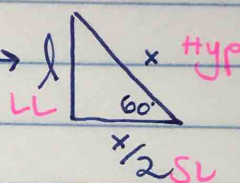 → l x Hyp
LL 60°
x/2 SL